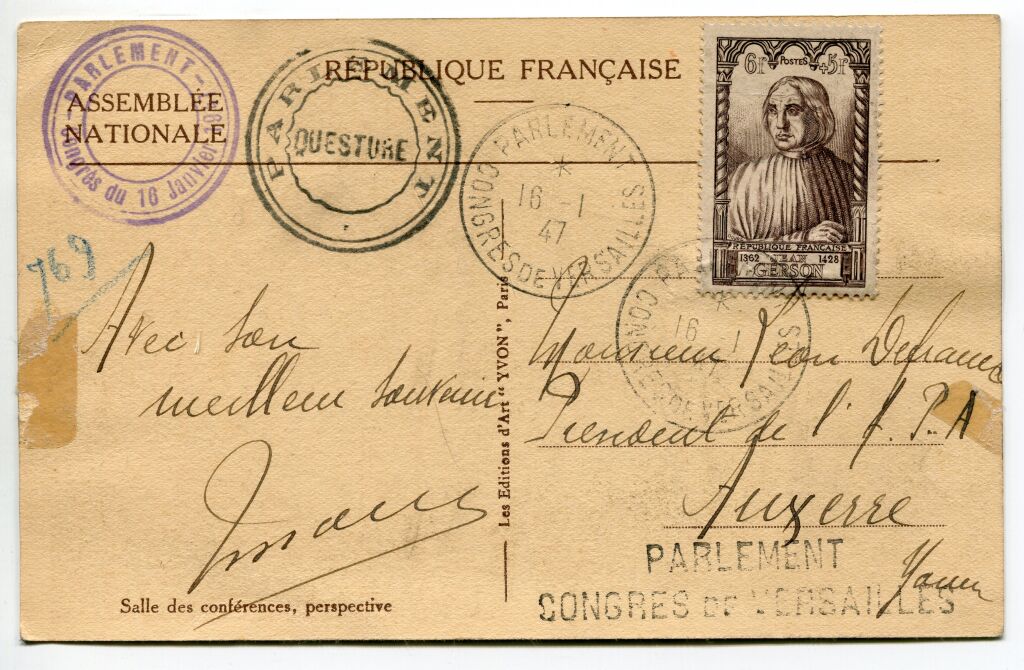 PARLEMENT -
Congrès du 16 Janvier 1947
ASSEMBLÉE
NATIONALE
PARLEMENT
QUESTURE
RÉPUBLIQUE FRANÇAISE
PARLEMENT
*
16 - 1
47
CONGRES DE VERSAILLES
6f POSTES +5f
RÉPUBLIQUE FRANÇAISE
1362 JEAN 1428
GERSON
PARLEMENT
*
16 - 1
47
CONGRES DE VERSAILLES
769
Avec son
meilleur souvenir
Les Editions d'Art "YVON", Paris
Monsieur Jean Defrance
President de l'A.P.A
Auxerre
Yonne
PARLEMENT
CONGRES DE VERSAILLES
Salle des conférences, perspective